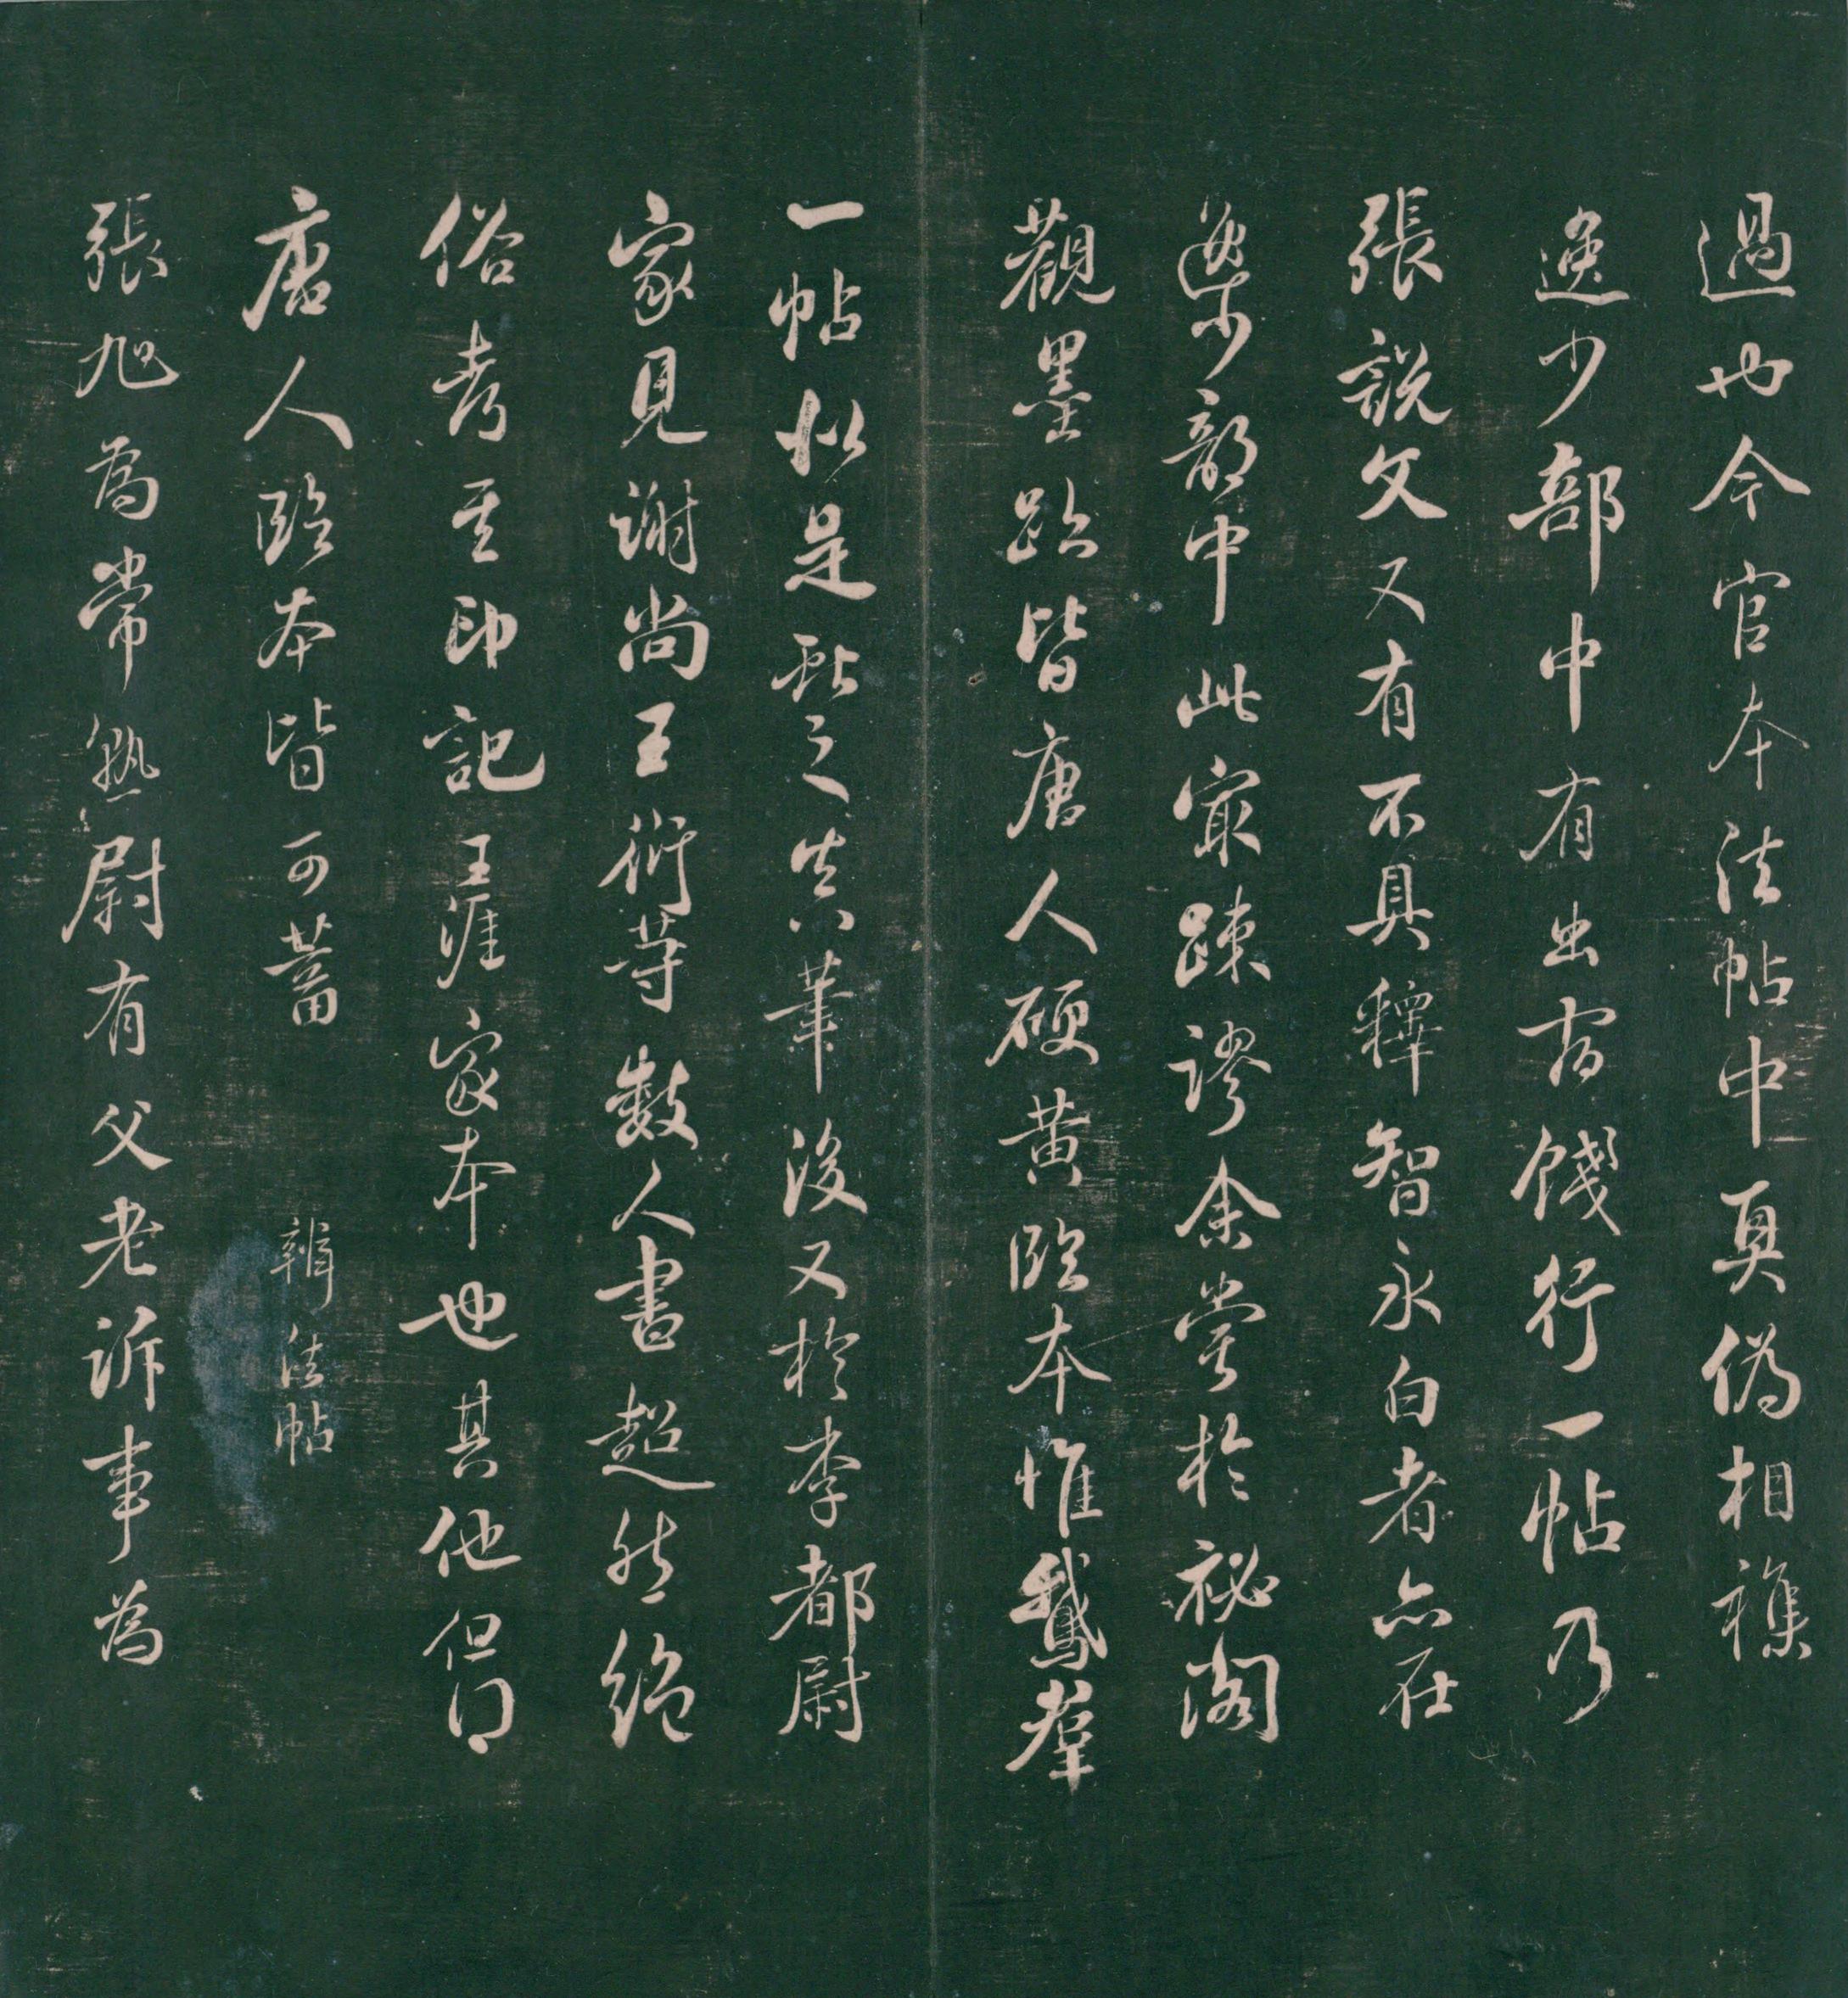 過也今官本法帖中真偽相雜
逸少部中有出宿餞行一帖乃
張說文又有不具釋智永白者亦在
逸少部中此最踈謬余嘗於祕閣
觀墨跡皆唐人硬黃臨本惟鵝羣
一帖似是献之真筆後又於李都尉
家見謝尚王衍等數人書超然絕
俗考其印記王涯家本也其他但得
唐人臨本皆可蓄
辨法帖
張旭為常熟尉有父老訴事為